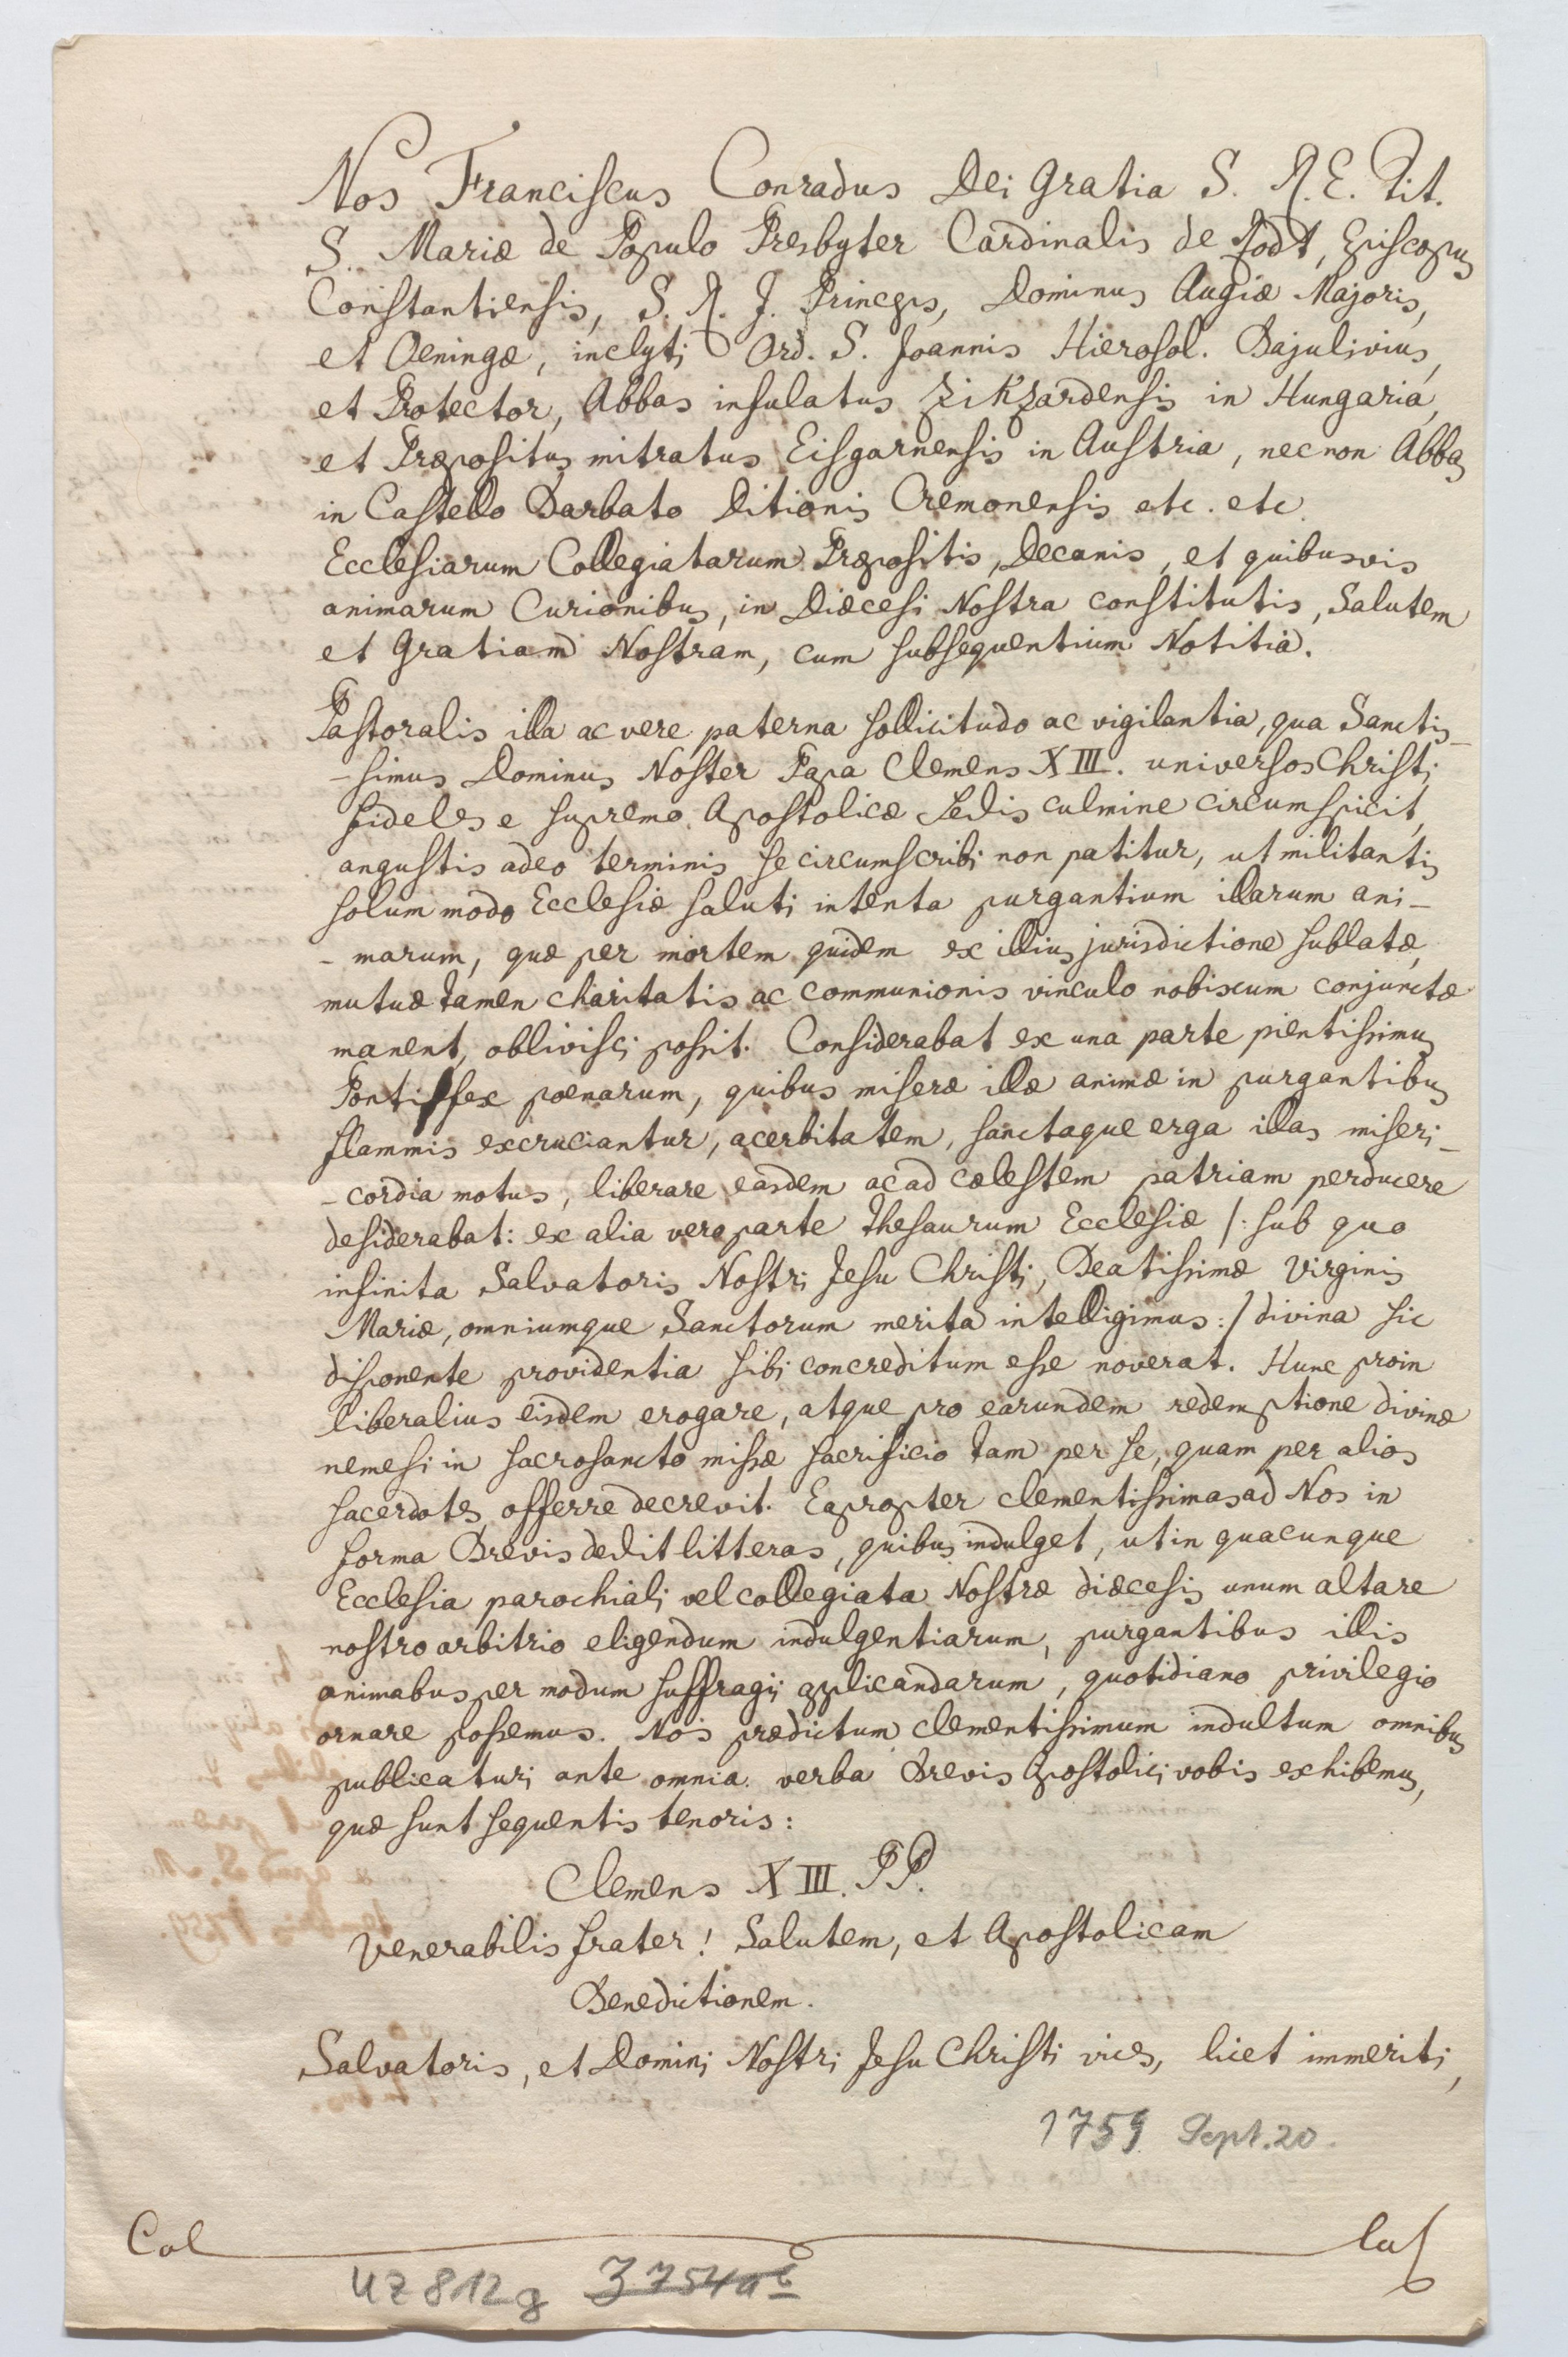 Nos Franciscus Conradus Dei Gratia S. R. E. Tit.
S. Mariæ de Populo Presbyter Cardinalis de Rodt, Episcopus
Constantiensis, S. R. J. Princeps, Dominus Augiæ Majoris,
et Oeningæ, inclyti Ord. S. Joannis Hierosol. Bajulivius,
et Protector, Abbas insulatus Zikzardensis in Hungaria,
et Præpositus mitratus Eisgarnensis in Austria, nec non Abbas
in Castello Barbato Ditionis Cremonensis etc. etc.
Ecclesiarum Collegiatarum Præpositis, Decanis, et quibusvis
animarum Curionibus, in Diæcesi Nostra constitutis, Salutem
et Gratiam Nostram, cum subsequentium Notitia.
Pastoralis illa ac vere paterna sollicitudo ac vigilantia, qua Sanctis-
-simus Dominus Noster Papa Clemens XIII. universos Christi
fideles e supremo Apostolicæ Sedis culmine circumspicit,
angustis adeo terminis se circumscribi non patitur, ut militantis
solum modo Ecclesiæ saluti intenta purgantium illarum ani-
-marum, quæ per mortem quidem ex illius jurisdictione sublatæ,
mutuæ tamen charitatis ac communionis vinculo nobiscum conjunctæ
manent, oblivisci possit. Considerabat ex una parte pientissimus
Pontifex poenarum, quibus miseræ illæ animæ in purgantibus
flammis excruciantur, acerbitatem, sanctaque erga illas miseri-
-cordia motus, liberare easdem ac ad cælestem patriam perducere
desiderabat: ex alia vero parte thesaurum Ecclesiæ /: sub quo
infinita Salvatoris Nostri Jesu Christi, Beatissimæ Virginis
Mariæ, omniumque Sanctorum merita intelligimus :/ divina sic
disponente providentia sibi concreditum esse noverat. Hunc proin
liberalius eisdem erogare, atque pro earundem redemptione divinæ
nemesi in sacrosancto missæ sacrificio tam per se, quam per alios
sacerdotes offerre decrevit. Eapropter clementissimas ad Nos in
forma Brevis dedit litteras, quibus indulget, ut in quacunque
Ecclesia parochiali vel collegiata Nostræ diæcesis unum altare
nostro arbitrio eligendum indulgentiarum, purgantibus illis
animabus per modum suffragii applicandarum, quotidiano privilegio
ornare possemus. Nos prædictum clementissimum indultum omnibus
publicaturi ante omnia verba Brevis Apostolici vobis exhibemus,
quæ sunt sequentis tenoris:
Clemens XIII. PP.
Venerabilis frater! Salutem, et Apostolicam
Benedictionem.
Salvatoris, et Domini Nostri Jesu Christi vices, licet immeriti,
1759 Sept. 20.
Col lus
UZ 812g Z 754a b